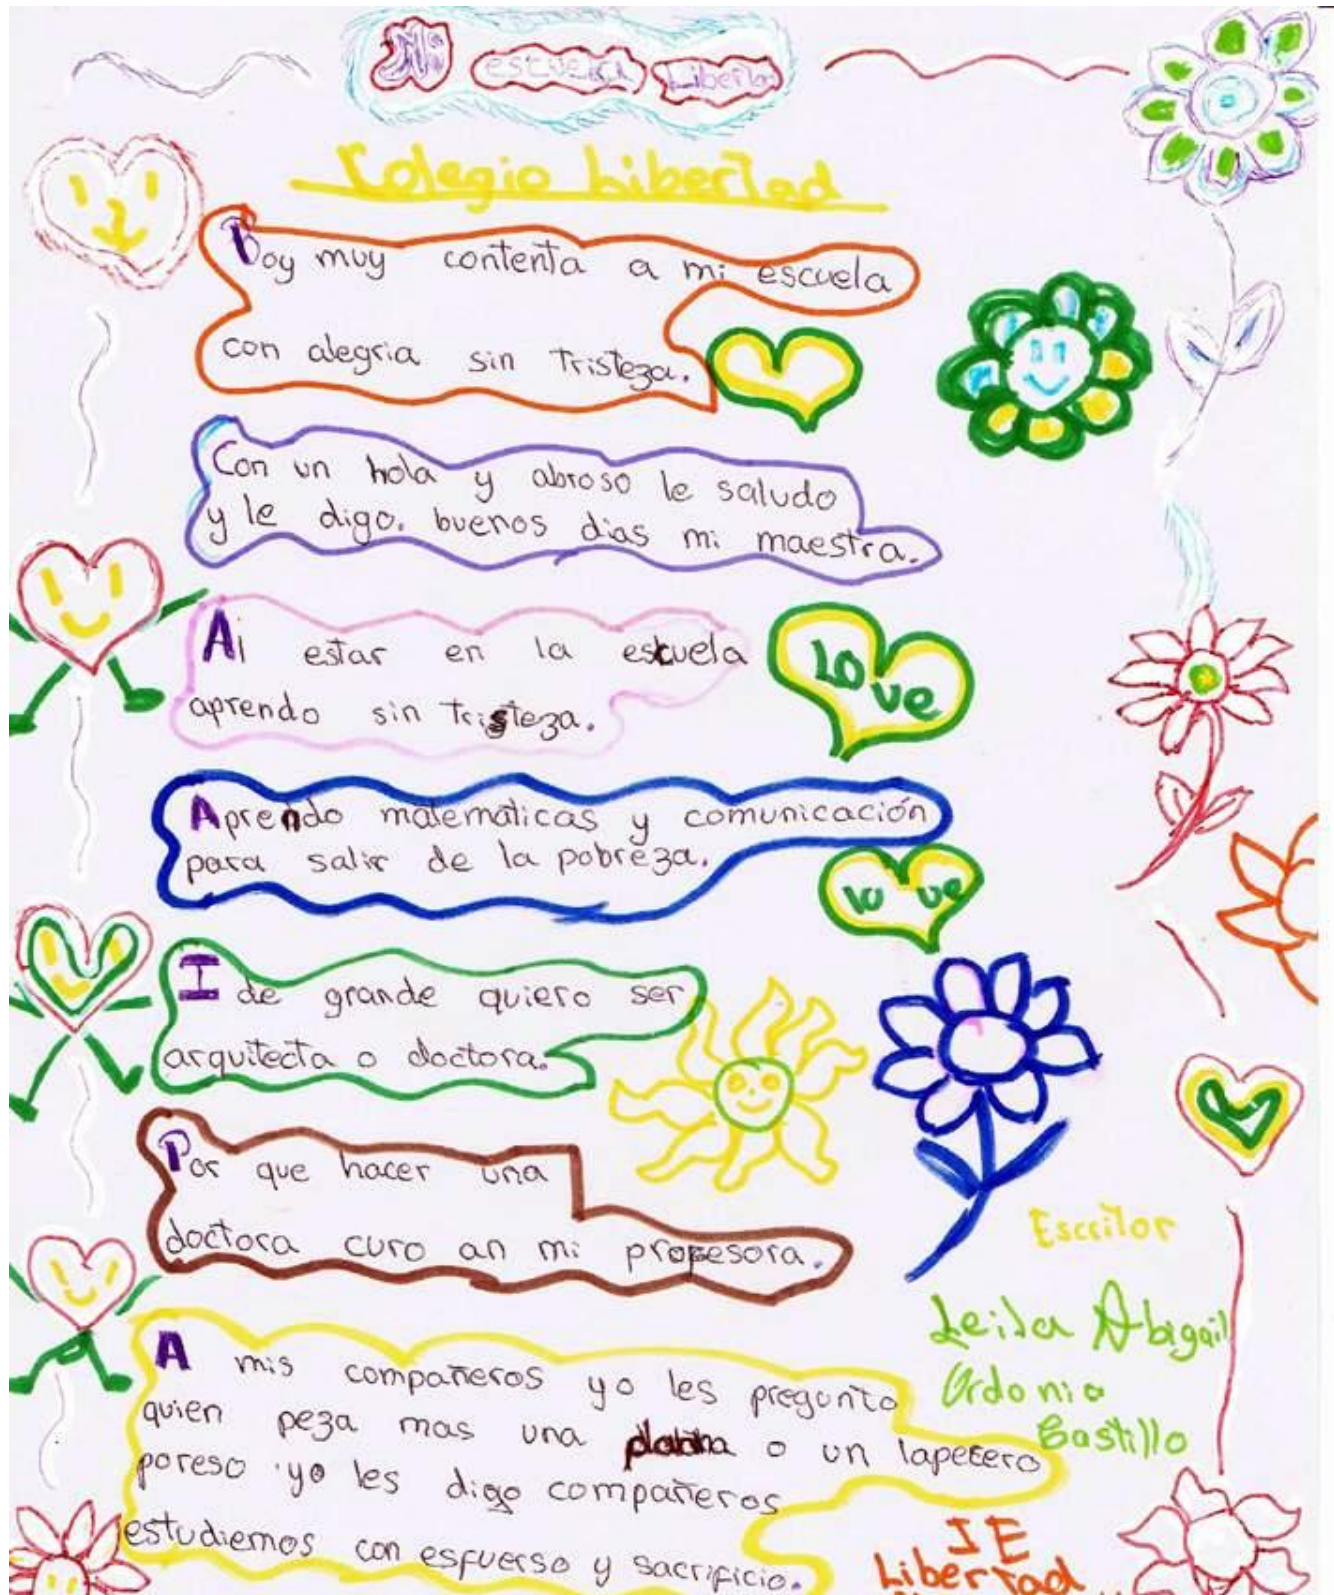 Mi escuela Liberta
Colegio Libertad
Voy muy contenta a mi escuela
con alegria sin tristeza.
Con un hola y abroso le saludo
y le digo. buenos dias mi maestra.
Al estar en la escuela
aprendo sin tristeza.
LOVE
Aprendo matematicas y comunicación
para salir de la pobreza.
lo ve
I de grande quiero ser
arquitecta o doctora.
Por que hacer una
doctora curo an mi profesora.
Escritor
Leila Abigail
Ordonia
Castillo
A mis compañeros yo les pregunto
quien peza mas una o un lapecero
poreso yo les digo compañeros
estudiemos con esfuerso y sacrificio.
IE
Libertad